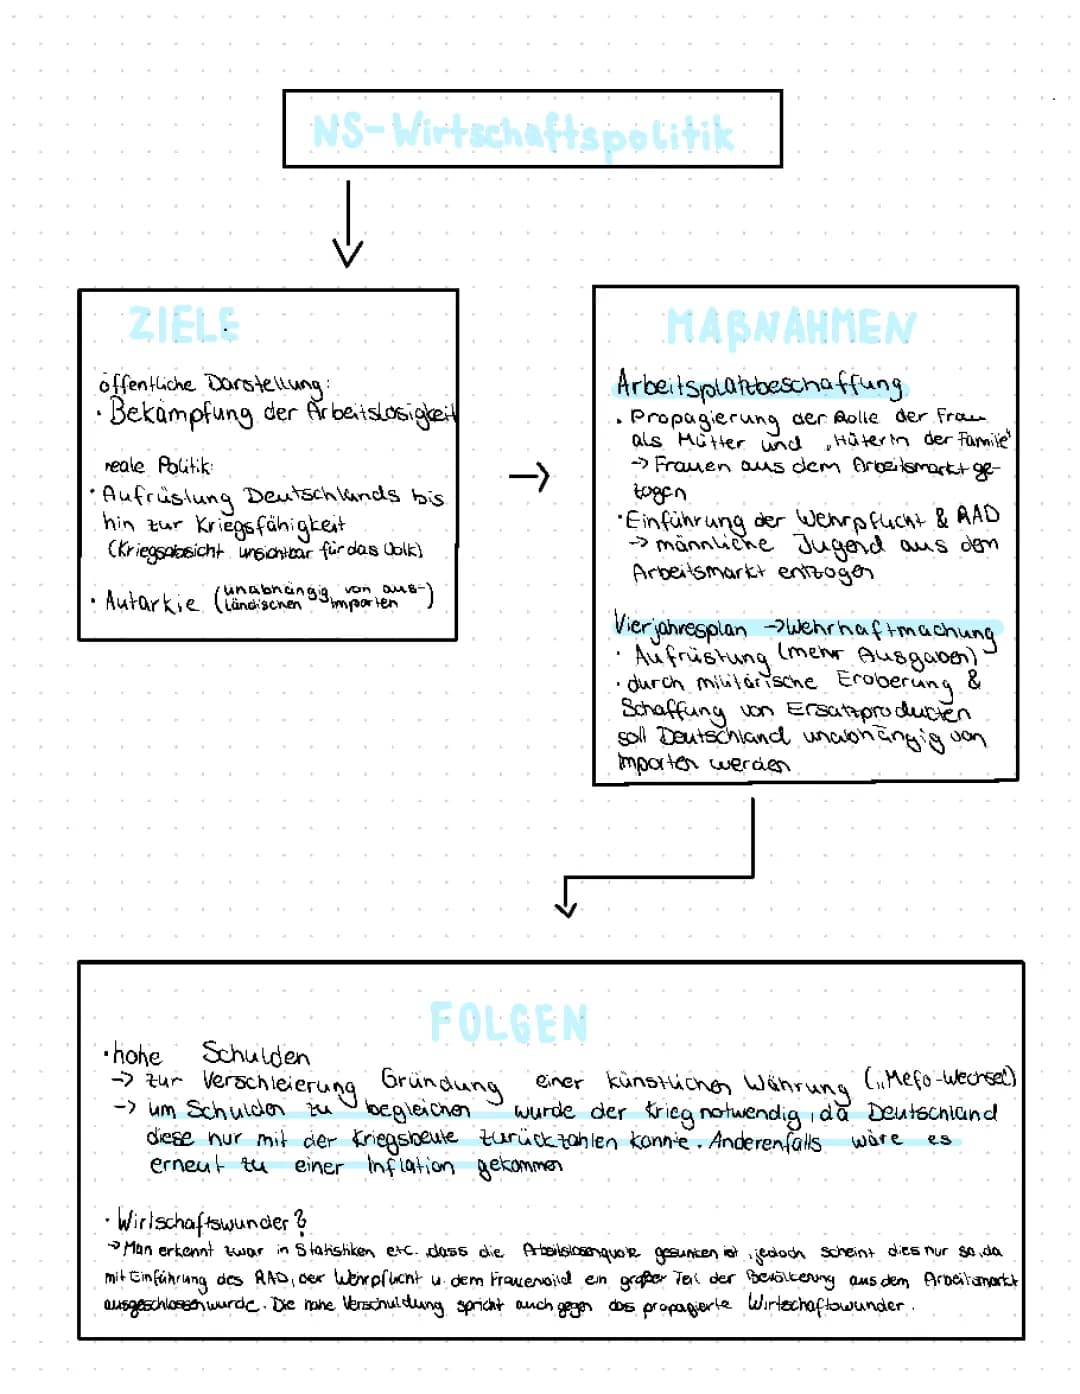 NS-Wirtschaftspolitik
ZIELE
öffentliche Darstellung:
· Bekämpfung der Arbeitslosigkeit
reale Politik:
· Aufrüstung Deutschlands bis
hin zur Kriegsfähigkeit
(Kriegsabsicht unsichtbar für das Volk)
· Autarkie (unabhängig von aus-
ländischen Importen)
MAßNAHMEN
Arbeitsplatzbeschaffung
· Propagierung der Rolle der Frau
als Mütter und „Hüterin der Familie"
-> Frauen aus dem Arbeitsmarkt ge-
zogen
· Einführung der Wehrpflicht & RAD
-> männliche Jugend aus dem
Arbeitsmarkt entzogen
Vierjahresplan -> Wehrhaftmachung
· Aufrüstung (mehr Ausgaben)
· durch militärische Eroberung &
Schaffung von Ersatzproducten
soll Deutschland unabhängig von
Importen werden
FOLGEN
· hohe Schulden
-> zur Verschleierung Gründung einer künstlichen Währung („Mefo-Wechsel)
-> um Schulden zu begleichen wurde der Krieg notwendig, da Deutschland
diese nur mit der Kriegsbeute zurückzahlen konnte. Anderenfalls wäre es
erneut zu einer Inflation gekommen
· Wirtschaftswunder?
-> Man erkennt zwar in Statistiken etc. dass die Arbeitslosenquote gesunken ist, jedoch scheint dies nur so, da
mit Einführung des RAD, der Wehrpflicht u. dem Frauenbild ein großer Teil der Bevölkerung aus dem Arbeitsmarkt
ausgeschlossen wurde. Die hohe Verschuldung spricht auch gegen das propagierte Wirtschaftswunder.